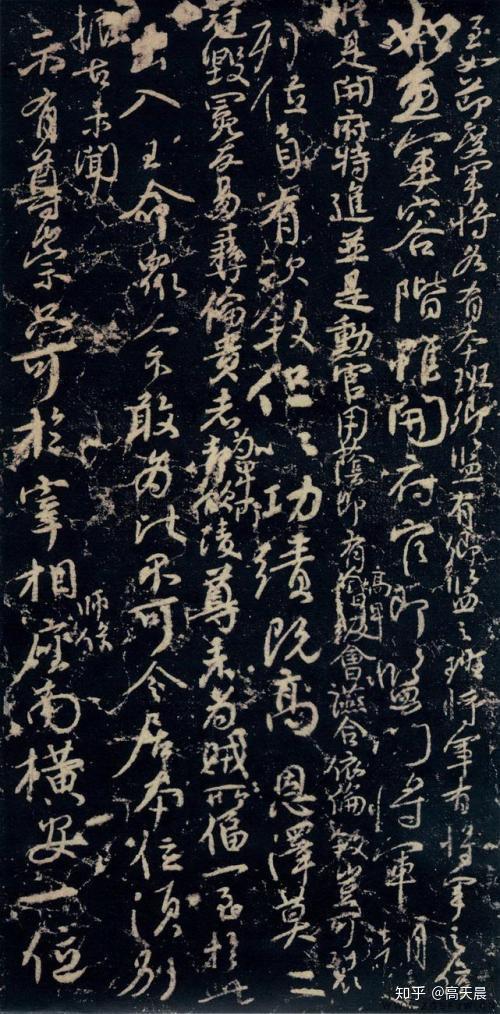 至如節度軍將各有本班卿監有卿監之班將軍有將軍之位
如魚軍容階雖開府官即監門將軍朝廷
縱是開府特進並是勳官用蔭即有高卑會讌合依倫敘豈可裂
列位自有次敘但以功績既高恩澤莫二
冠毀冕反易彝倫貴者為卑所凌尊者為賊所偪一至於此
出入王命眾人不敢為比不可令居本位須別
振古未聞
示有尊崇只可於宰相師保座南橫安一位
知乎 @高天晨